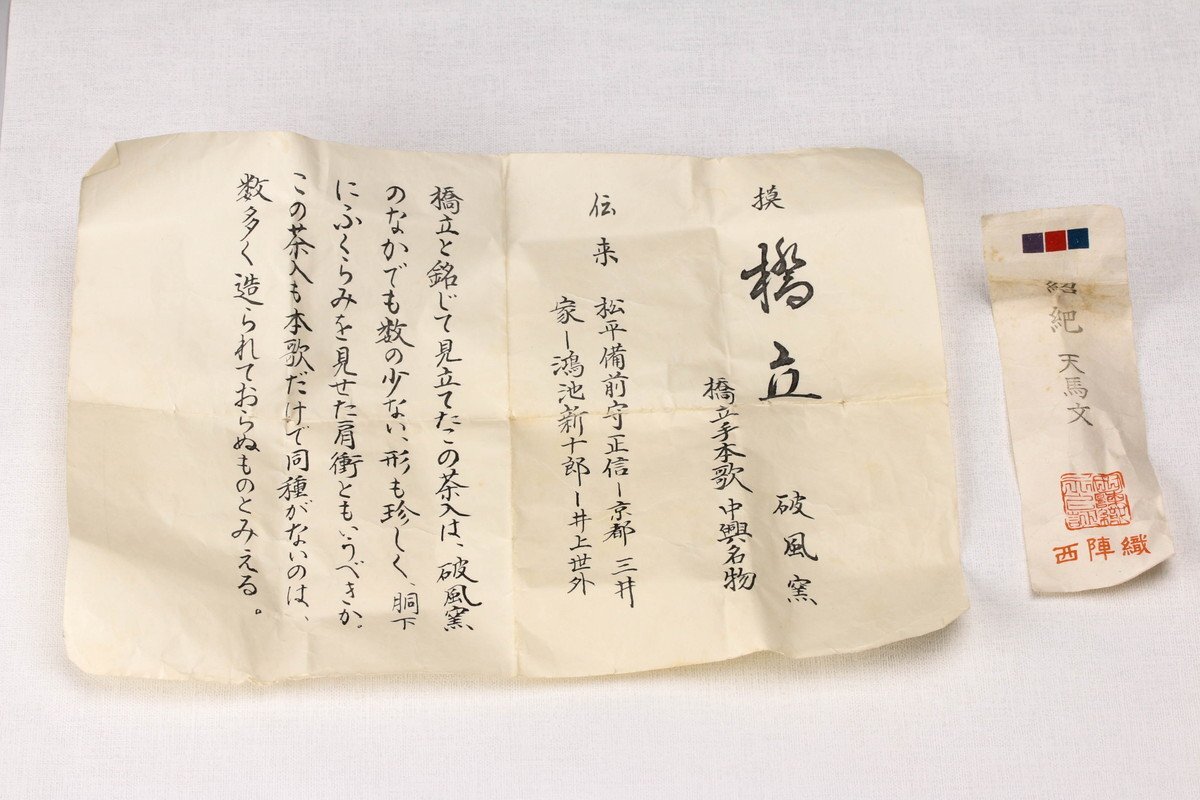 模 橋立 破風窯
橋立手本歌 中興名物
伝来 松平備前守正信ー京都 三井
家ー鴻池新十郎ー井上世外
橋立と銘じて見立てたこの茶入は、破風窯
のなかでも数の少ない、形も珍しく、胴下
にふくらみを見せた肩衝ともいうべきか。
この茶入も本歌だけで同種がないのは、
数多く造られておらぬものとみえる。
紹紦 天馬文
西陣織